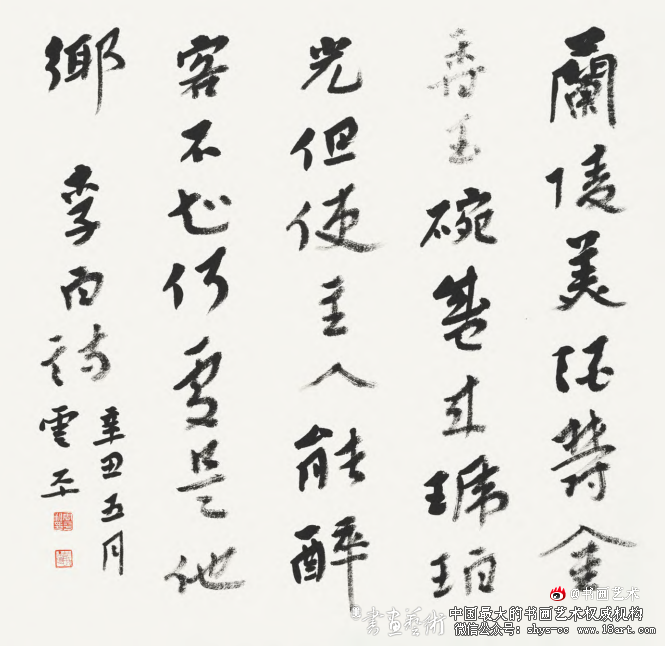 蘭陵美酒鬱金
香玉碗盛來琥珀
光但使主人能醉
客不知何處是他
鄉 李白詩
辛丑五月
雲平
@书画艺术
書畫藝術
中国最大的书画艺术权威机构
微信公众号: shys-cc www.18art.com